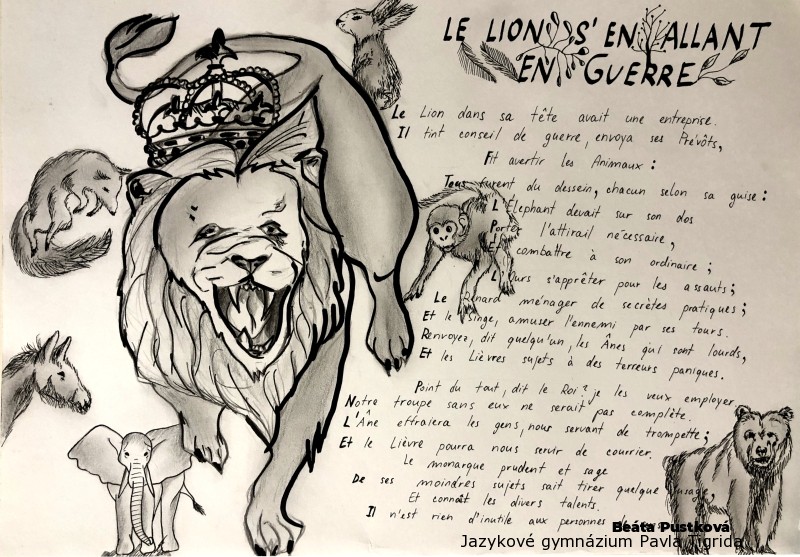 LE LION S'EN ALLANT
EN GUERRE
Le Lion dans sa tête avait une entreprise.
Il tint conseil de guerre, envoya ses Prévôts,
Fit avertir les Animaux :
Tous furent du dessein, chacun selon sa guise :
L'Élephant devait sur son dos
Porter l'attirail nécessaire,
Et combattre à son ordinaire ;
L'Ours s'apprêter pour les assauts ;
Le Renard ménager de secrètes pratiques ;
Et le Singe, amuser l'ennemi par ses tours.
Renvoyez, dit quelqu'un, les Ânes qui sont lourds,
Et les Lièvres sujets à des terreurs paniques.
Point du tout, dit le Roi ; je les veux employer.
Notre troupe sans eux ne serait pas complète.
L'Âne effraiera les gens, nous servant de trompette ;
Et le Lièvre pourra nous servir de courrier.
Le monarque prudent et sage
De ses moindres sujets sait tirer quelque usage,
Et connaît les divers talents.
Il n'est rien d'inutile aux personnes de
Beáta Pustková
Jazykové gymnázium Pavla Tigrida